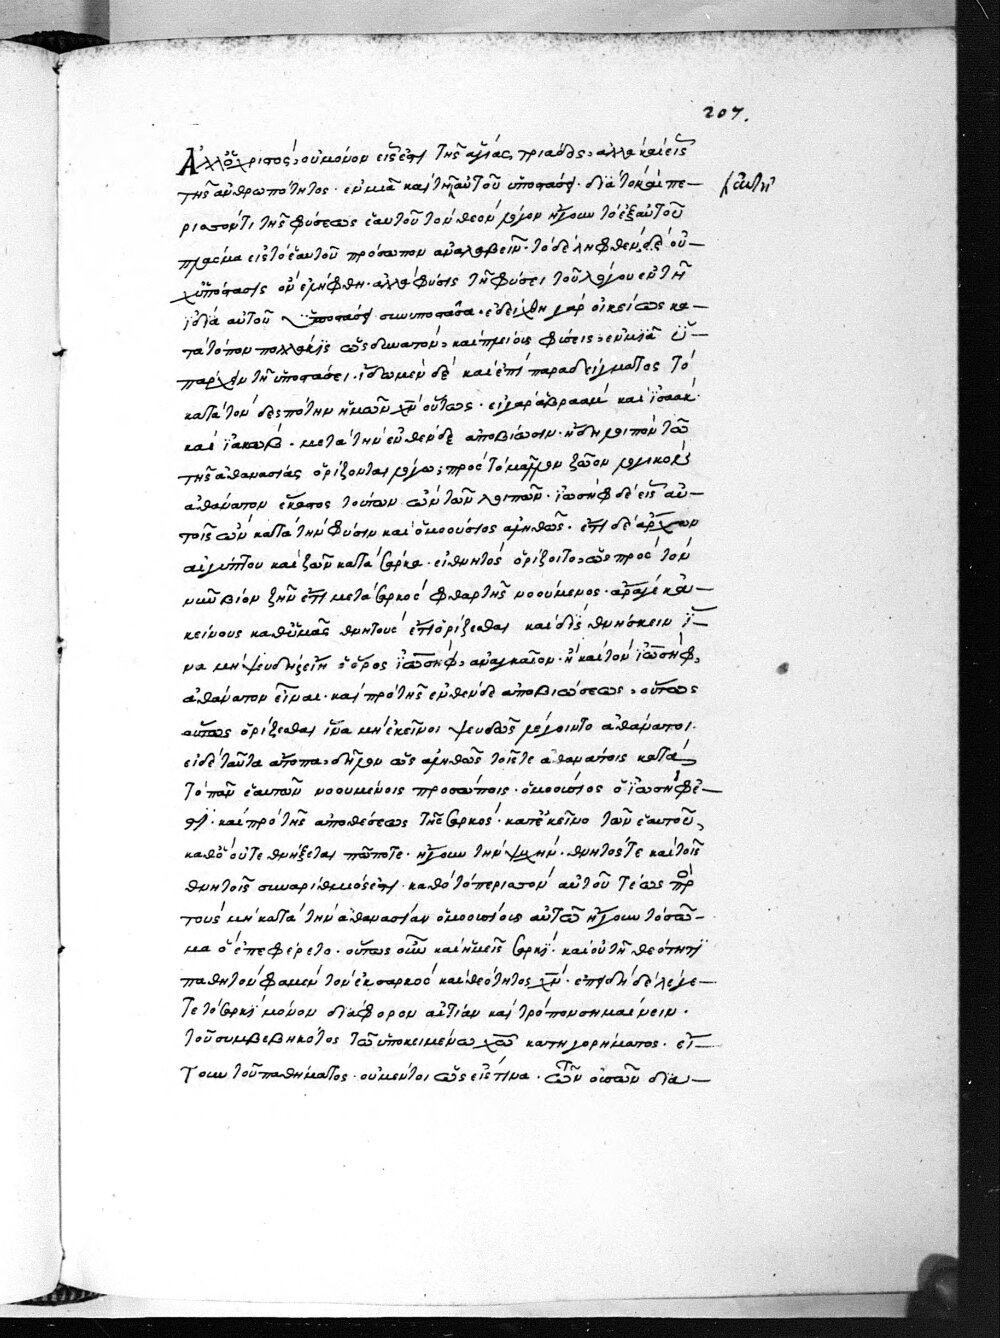 207.
Ἀλλ' ὁ χριστὸς, οὐ μόνον εἷς ἐστι τῆς ἁγίας τριάδος, ἀλλὰ καὶ εἷς
τῆς ἀνθρωπότητος· ἐν μιᾷ καὶ τῇ αὐτοῦ ὑποστάσει· διὰ τὸ καὶ πε-
ριαστὸν τι τῆς φύσεως ἑαυτοῦ τὸν θεὸν λόγον ἤγουν τὸ ἐξ αὐτοῦ
πλάσμα εἰς τὸ ἑαυτοῦ πρόσωπον ἀναλαβεῖν· τὸ δὲ ληφθὲν, δὲ οὐ-
χ ὑπόστασις ὂν ἐλήφθη· ἀλλὰ φύσις τῇ φύσει τοῦ λόγου ἐν τῇ
ἰδίᾳ αὐτοῦ ὑποστάσει συνυποστᾶσα· ἐδείχθη γὰρ οἰκείως κα-
τὰ τόπον πολλάκις ὡς δυνατὸν, καὶ πλείους φύσεις, ἐν μιᾷ ὑ-
πάρχειν τῇ ὑποστάσει· ἴδωμεν δὲ καὶ ἐπὶ παραδείγματος τὸ
κατὰ τὸν δεσπότην ἡμῶν χν οὕτως· εἰ γὰρ ἀβραὰμ καὶ ἰσαὰκ
καὶ ἰακώβ· μετὰ τὴν ἐνθένδε ἀποβίωσιν· ἤδη λοιπὸν τῷ
τῆς ἀθανασίας ὁρίζονται λόγῳ, πρὸς τὸ μᾶλλον ζῶον λογικὸν
ἀθάνατον ἕκαστος τούτων ὢν τῶν λοιπῶν· ἰωσὴφ δὲ εἷς αὐ-
τοῖς ὢν κατὰ τὴν φύσιν καὶ ὁμοούσιος ἀληθῶς· ἔτι δὲ ἄρχων
αἰγύπτου καὶ ζῶν κατὰ σάρκα· εἰ θνητὸς ὁρίζοιτο, ὡς πρὸς τὸν
νῦν βίον ζῆν ἔτι μετὰ σαρκὸς φθαρτῆς νοούμενος· ἆρά γε κἀ-
κείνους καθ' ὑμᾶς θνητοὺς ἔτι ὁρίζεσθαι καὶ δὶς θνήσκειν ἵ-
να μὴ ψευδὴς εἴη ὁ ὅρος ἰωσὴφ, ἀναγκαῖον· ἢ καὶ τὸν ἰωσὴφ,
ἀθάνατον εἶναι· καὶ πρὸ τῆς ἐνθένδε ἀποβιώσεως, οὕτως
αὕτως ὁρίζεσθαι ἵνα μὴ ἐκεῖνοι ψευδῶς λέγοιντο ἀθάνατοι.
εἰ δὲ ταῦτα ἄτοπα, δῆλον ὡς ἀληθῶς τοῖς τε ἀθανάτοις κατὰ
τὸ πᾶν ἑαυτῶν νοουμένοις προσώποις· ὁμοούσιος ὁ ἰωσὴφ ἐ-
στι· καὶ πρὸ τῆς ἀποθέσεως τῆς σαρκὸς· κατ' ἐκεῖνο τῶν ἑαυτοῦ,
καθ' ὃ οὔτε θνήξεται πώποτε· ἤγουν τὴν ψυχήν· θνητός τε καὶ τοῖς
θνητοῖς συναρίθμιός ἐστι· καθ' ὃ τὸ περιαστὸν αὐτοῦ τέως πρὸ
τοὺς μὴ κατὰ τὴν ἀθανασίαν ὁμοουσίους αὐτῷ ἤγουν τὸ σῶ-
μα ὃ ἐπεφέρετο· οὕτως οὖν καὶ ἡμεῖς σαρκὶ· καὶ οὐ τῇ θεότητι
παθητὸν φαμὲν τὸν ἐκ σαρκὸς καὶ θεότητος χν· ἐπειδὴ δὲ λέγε-
τε τὸ σαρκὶ μόνον διάφορον αἰτίαν καὶ τρόπον σημαίνειν·
τοῦ συμβεβηκότος τῷ ὑποκειμένῳ χω κατηγορήματος· εἴ-
τουν τοῦ παθήματος· οὐ μέντοι ὡς εἴς τινα· ὧν οὐσῶν δια-